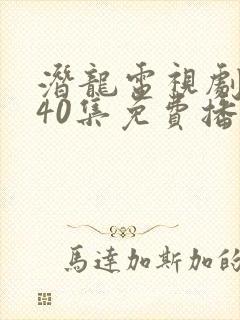 潛龍電視劇
40集免費播
馬達加斯加的